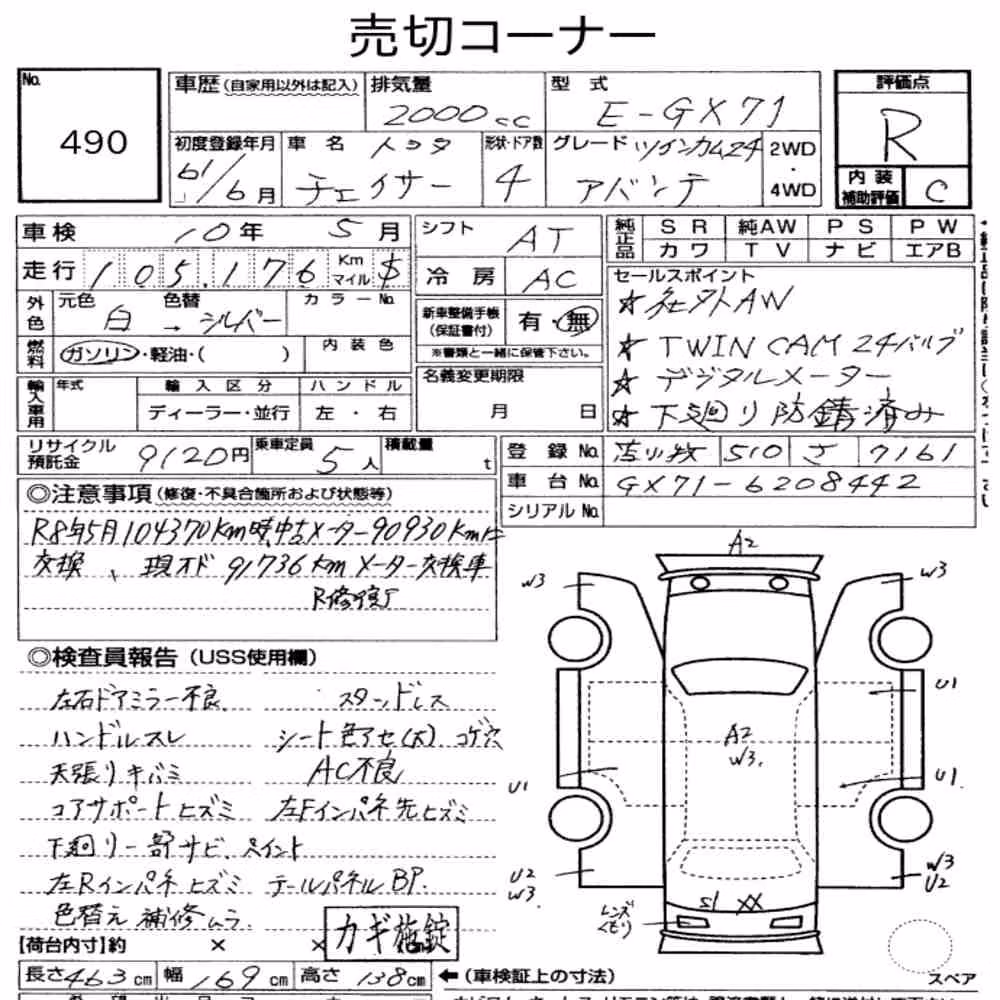 売切コーナー
No.
490
車歴(自家用以外は記入)
排気量
2000cc
型 式
E-GX71
評価点
R
初度登録年月
61/6月
車 名
トヨタ
チェイサー
形状・ドア数
4
グレード ツインカム24
アバンテ
2WD
・
4WD
内装
補助評価
C
車検 10年 5月
走行 105,176 Km マイル $
シフト AT
冷 房 AC
純正品
SR 純AW PS PW
カワ TV ナビ エアB
外色
元色 白 → 色替 シルバー
カラーNo.
燃料
ガソリン・軽油・( )
内装色
新車整備手帳
(保証書付)
有・無
※書類と一緒に保管下さい。
セールスポイント
☆社外AW
☆TWIN CAM 24バルブ
☆デジタルメーター
☆下廻り防錆済み
輸入車用
年式
輸入区分
ディーラー・並行
ハンドル
左・右
名義変更期限
月 日
リサイクル
預託金
9120円
乗車定員
5人
積載量
t
登 録 No. 苫小牧 510 さ 7161
車 台 No. GX71-6208442
シリアルNo.
◎注意事項(修復・不具合箇所および状態等)
R8年5月104370Km時、中古メーター90930Kmに
交換、現オド91736Kmメーター交換車
R修復了
◎検査員報告(USS使用欄)
左右ドアミラー不良 スタッドレス
ハンドルスレ シート色アセ(大) コゲ穴
天張りキバミ AC不良
コアサポートヒズミ 左Fインパネ先ヒズミ
下廻り一部サビ、ペイント
左Rインパネヒズミ テールパネルBP.
色替え補修ムラ
カギ施錠
【荷台内寸】約 × ×
長さ463cm 幅169cm 高さ138cm
←(車検証上の寸法)
A2
W3
W3
U1
A2
W3.
U1
U1
U2
W3.
W3
U2
S1 XX
レンズ
くもり
スペア